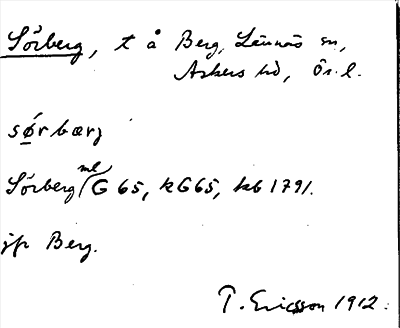 Sörberg, t å Berg, Lännäs sn,
Askers hd, Ör. l.
sø̀rbærj
Sörberg ml G 65, kG65, kb 1791.
jfr Berg.
T. Ericsson 1912.